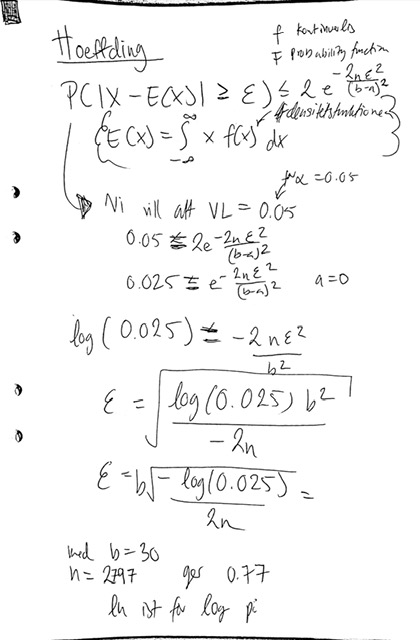 Hoeffding
f kontinuerlig
F Probability function
P(|X - E(X)| ≥ ε) ≤ 2 e^{-2nε²/(b-a)²}
{E(X) = ∫_{-∞}^{∞} x f(x) dx
Ni vill att VL = 0.05
α = 0.05
0.05 ≤ 2e^{-2nε²/(b-a)²}
0.025 ≤ e^{-2nε²/(b-a)²} a=0
log(0.025) ≤ -2nε²/b²
ε = √(log(0.025) b²/-2n)
ε = b√(-log(0.025)/2n) =
med b=30
n = 2797 ger 0.77
ln ist för log